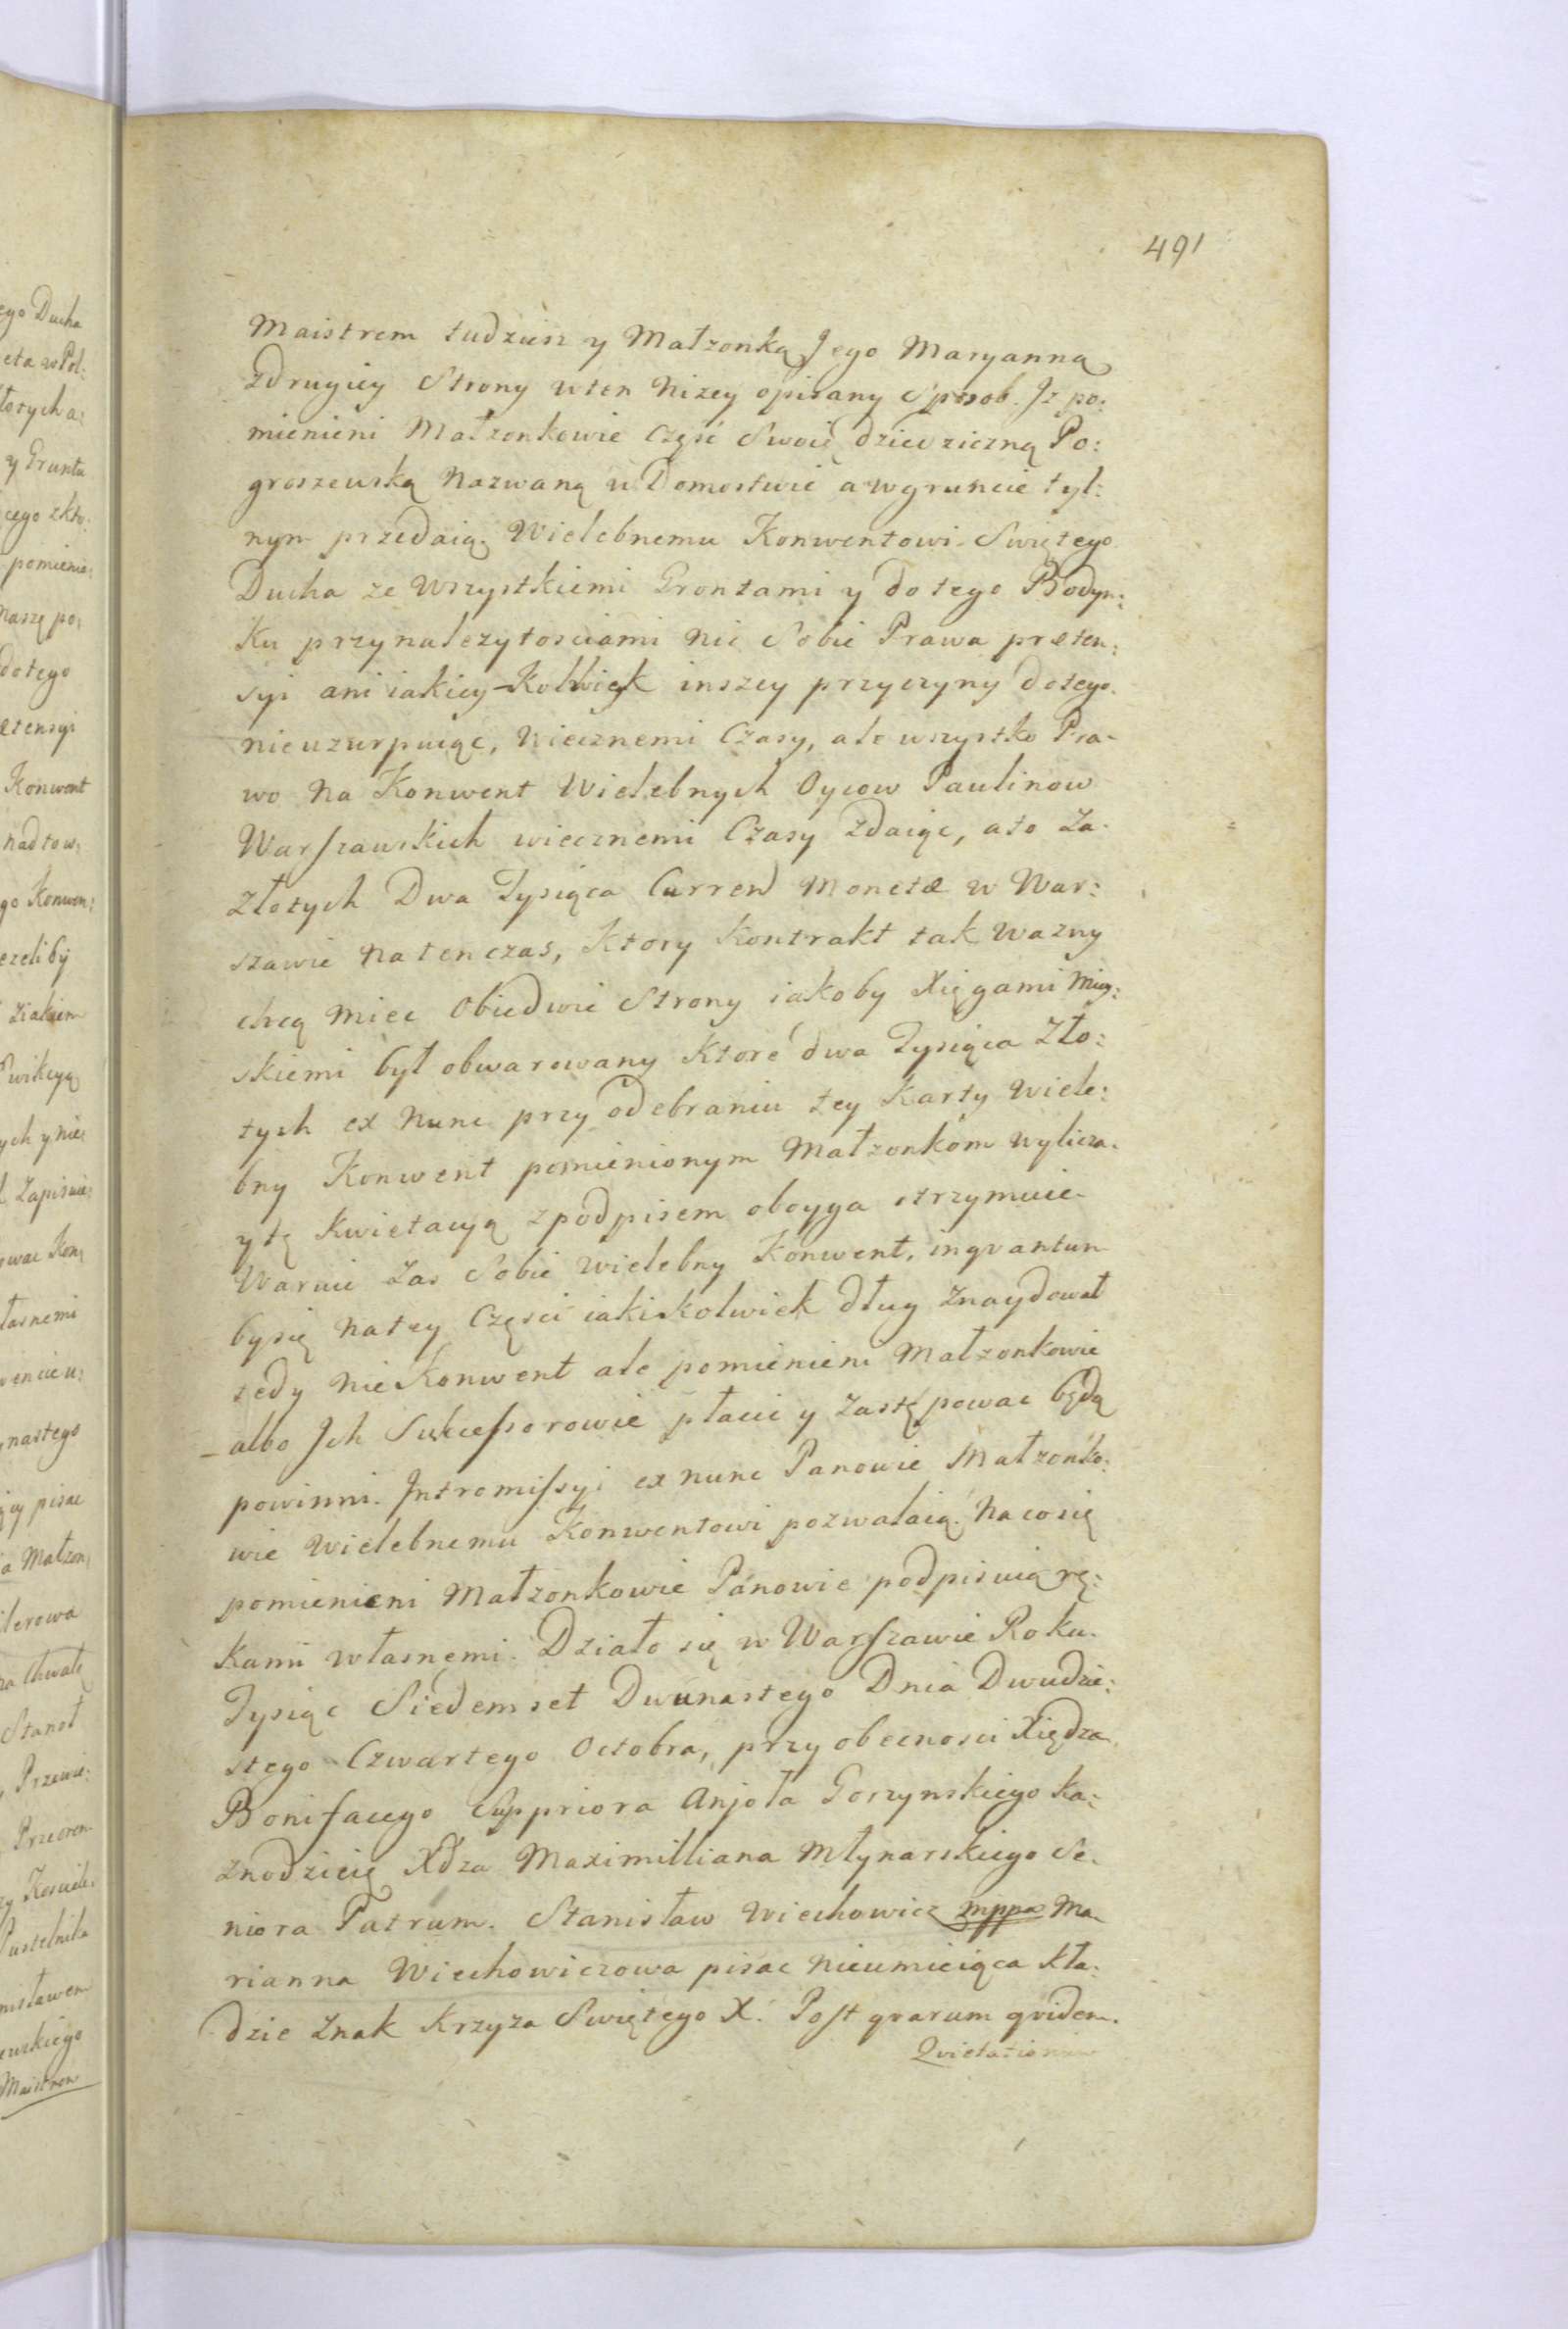 491
Maistrem tudziesz y Małzonką Jego Maryanną
zdrugiey Strony wten nizey opisany Sposob. Jz po:
mienieni Małzonkowie Część Swoię dziedziczną Po:
groszewską Nazwaną w Domostwie a wgruncie tyl:
nym przedaią Wielebnemu Konwentowi Swiętego
Ducha ze wszystkiemi Grontami y do tego Bodyn:
Ku przynalezytosciami nic Sobie Prawa præten:
syi ani iakiey-Kolwiek inszey przyczyny dotego
nieuzurpuiąc, Wiecznemi Czasy, ale wszystko Pra-
wo na Konwent Wielebnych Oycow Paulinow
Warszawskich wiecznemi Czasy zdaiąc, ato Za
Złotych Dwa Tysiąca Curren Monetæ w War:
szawie natenczas, Ktory Kontrakt tak wazny
chcą miec Obiedwie Strony iakoby Xięgami Miey:
skiemi był obwarowany Ktore dwa Tysiąca Zło:
tych ex nunc przy odebraniu tey Karty Wiele:
bny Konwent pomienionym Małzonkom wylicza
ytę Kwietacyą zpodpisem oboyga otrzymuie
Waruie zas Sobie wielebny Konwent, inqvantum
bysię natey Części iakikolwiek dług Znaydował
tedy nie Konwent ale pomienieni Małzonkowie
albo Jch Sukcessorowie płacic y Zastępowac będą
powinni. Intromissyi ex nunc Panowie Małzonko:
wie Wielebnemu Konwentowi pozwalaią. Na co się
pomienieni Małzonkowie Panowie podpisuią rę:
kami własnemi. Działo się w Warszawie Roku
Tysiąc Siedemset Dwunastego Dnia Dwudzie:
stego Czwartego Octobra, przy obecnosci Xiędza
Bonifacego Suppriora Anjoła Gorzynskiego ka:
znodzieię Xdza Maximilliana Młynarskiego Se:
niora Patrum. Stanisław Wiechowicz mppa Ma
rianna Wiechowiczowa pisac nieumieiąca kła:
dzie Znak Krzyza Swiętego X. Post qvarum qvidem
Qvietationum
ego Ducha
y Gruntu
pomienio:
naszę po:
dotego
ætensyi
Konwent
nadtow:
go Konwen:
ezeliby
ych y nie:
Zapisuie:
nastego
pisac
a Małzon:
Stanoł
Maistrem